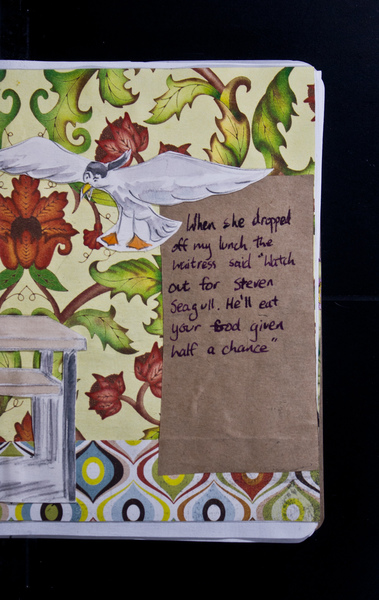 When she dropped
off my lunch the
waitress said "Watch
out for Steven
Seagull. He'll eat
your food given
half a chance"